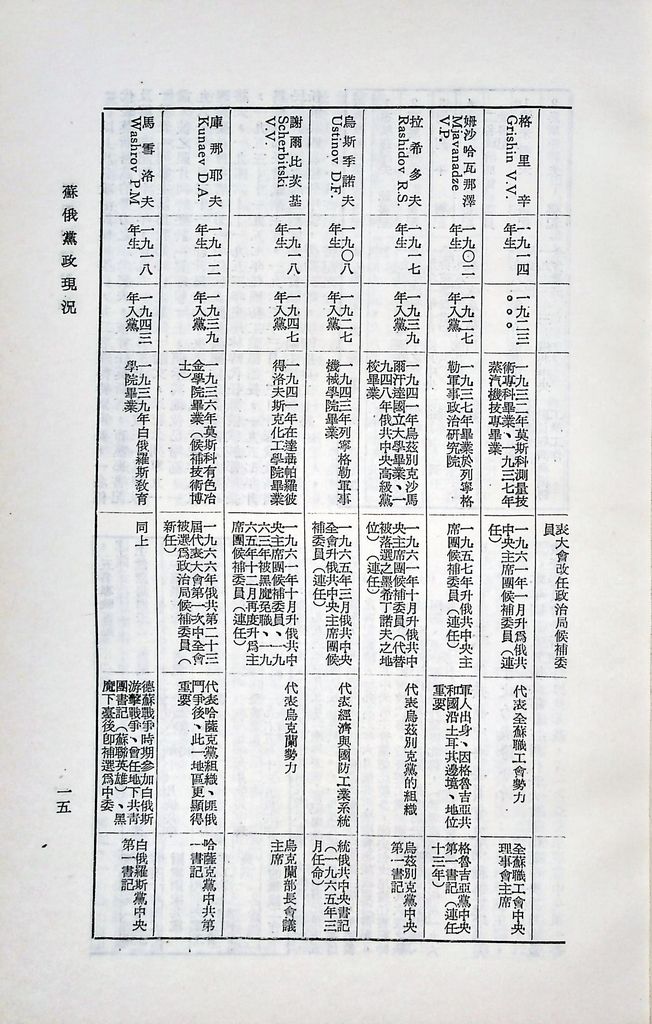 表大會改任政治局候補委
員）
格里辛
Grishin V.V.
一九一四
年生
一九二三
○○○
一九三二年莫斯科測量技
術專科畢業、一九三七年
蒸汽機技專畢業
一九六一年一月升爲俄共
中央主席團候補委員（連
任）
代表全蘇職工會勢力
全蘇職工會中央
理事會主席
姆沙哈瓦那澤
Mjavanadze
V.P.
一九〇二
年生
一九二七
年入黨
一九三七年畢業於列寧格
勒軍事政治研究院
一九五七年升俄共中央主
席團候補委員（連任）
軍人出身、因格魯吉亞共
和國沿土耳其邊境、地位
重要
格魯吉亞黨中央
第一書記（連任
十三年）
拉希多夫
Rashidov R.S.
一九一七
年生
一九三九
年入黨
一九四一年烏茲別克沙馬
爾汗達國立大學畢業、一
九四八年俄共中央高級黨
校畢業
一九六一年十月升俄共中
央主席團候補委員（代替
被落選之墨希丁諾夫之地
位）（連任）
代表烏茲別克黨的組織
烏茲別克黨中央
第一書記
烏斯季諾夫
Ustinov D.F.
一九〇八
年生
一九二七
年入黨
一九四三年列寧格勒軍事
機械學院畢業
一九六五年三月俄共中央
全會升俄共中央主席團候
補委員（連任）
代表經濟與國防工業系統
統俄共中央書記
（一九六五年三
月任命）
謝爾比茨基
Scherbitski
V.V.
一九一八
年生
一九四七
年入黨
一九四一年在達聶帕羅彼
得洛夫斯克化工學院畢業
一九六一年十月升俄共中
央主席團候補委員、一九
六三年被黑魔免職、一九
六五年十二月再度升爲主
席團候補委員（連任）
代表烏克蘭勢力
烏克蘭部長會議
主席
庫那耶夫
Kunaev D.A.
一九一二
年生
一九三九
年入黨
一九三六年莫斯科有色冶
金學院畢業（候補技術博
士）
一九六六年俄共第二十三
屆代表大會第一次中全會
被選爲政治局候補委員（
新任）
代表哈薩克黨組織、匪俄
鬥爭後、此一地區更顯得
重要
哈薩克黨中共第
一書記
馬雪洛夫
Washrov P.M
一九一八
年生
一九四三
年入黨
一九三九年白俄羅斯敎育
學院畢業
同上
德蘇戰爭時期參加白俄斯
游擊戰爭、曾任地下共青
團書記（蘇聯英雄）、黑
魔下臺後卽補選爲中委
白俄羅斯黨中央
第一書記
蘇俄黨政現況
一五